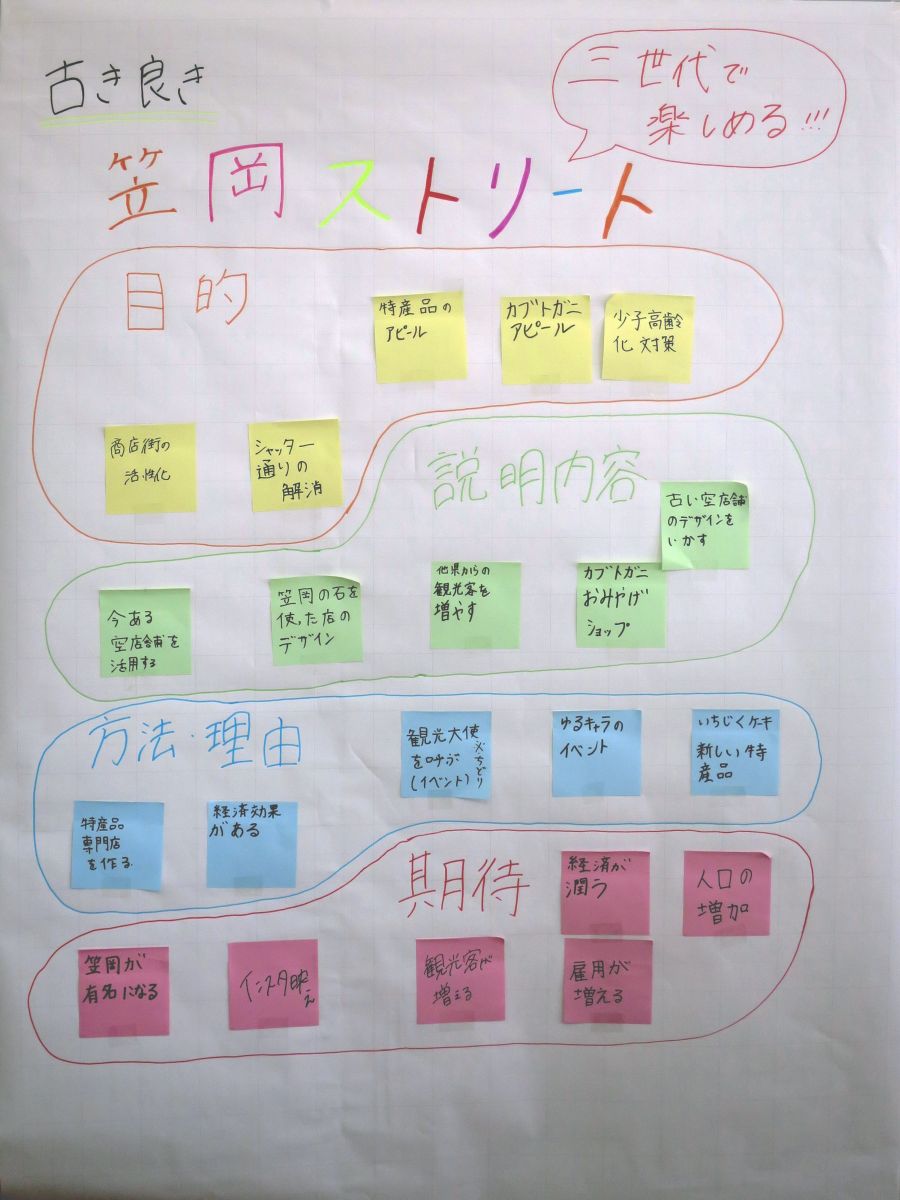 古き良き
三世代で
楽しめる!!!
笠岡ストリート
目的
特産品の
アピール
カブトガニ
アピール
少子高齢
化対策
商店街の
活性化
シャッター
通りの
解消
説明内容
古い空店舗
のデザインを
いかす
今ある
空店舗を
活用する
笠岡の石を
使った店の
デザイン
他県からの
観光客を
増やす
カブトガニ
おみやげ
ショップ
方法・理由
観光大使
を呼ぶ
(イベント)
※ちどり
ゆるキャラの
イベント
いちじくケーキ
新しい特
産品
特産品
専門店
を作る
経済効果
がある
期待
経済が
潤う
人口の
増加
笠岡が
有名になる
インスタ映え
観光客が
増える
雇用が
増える